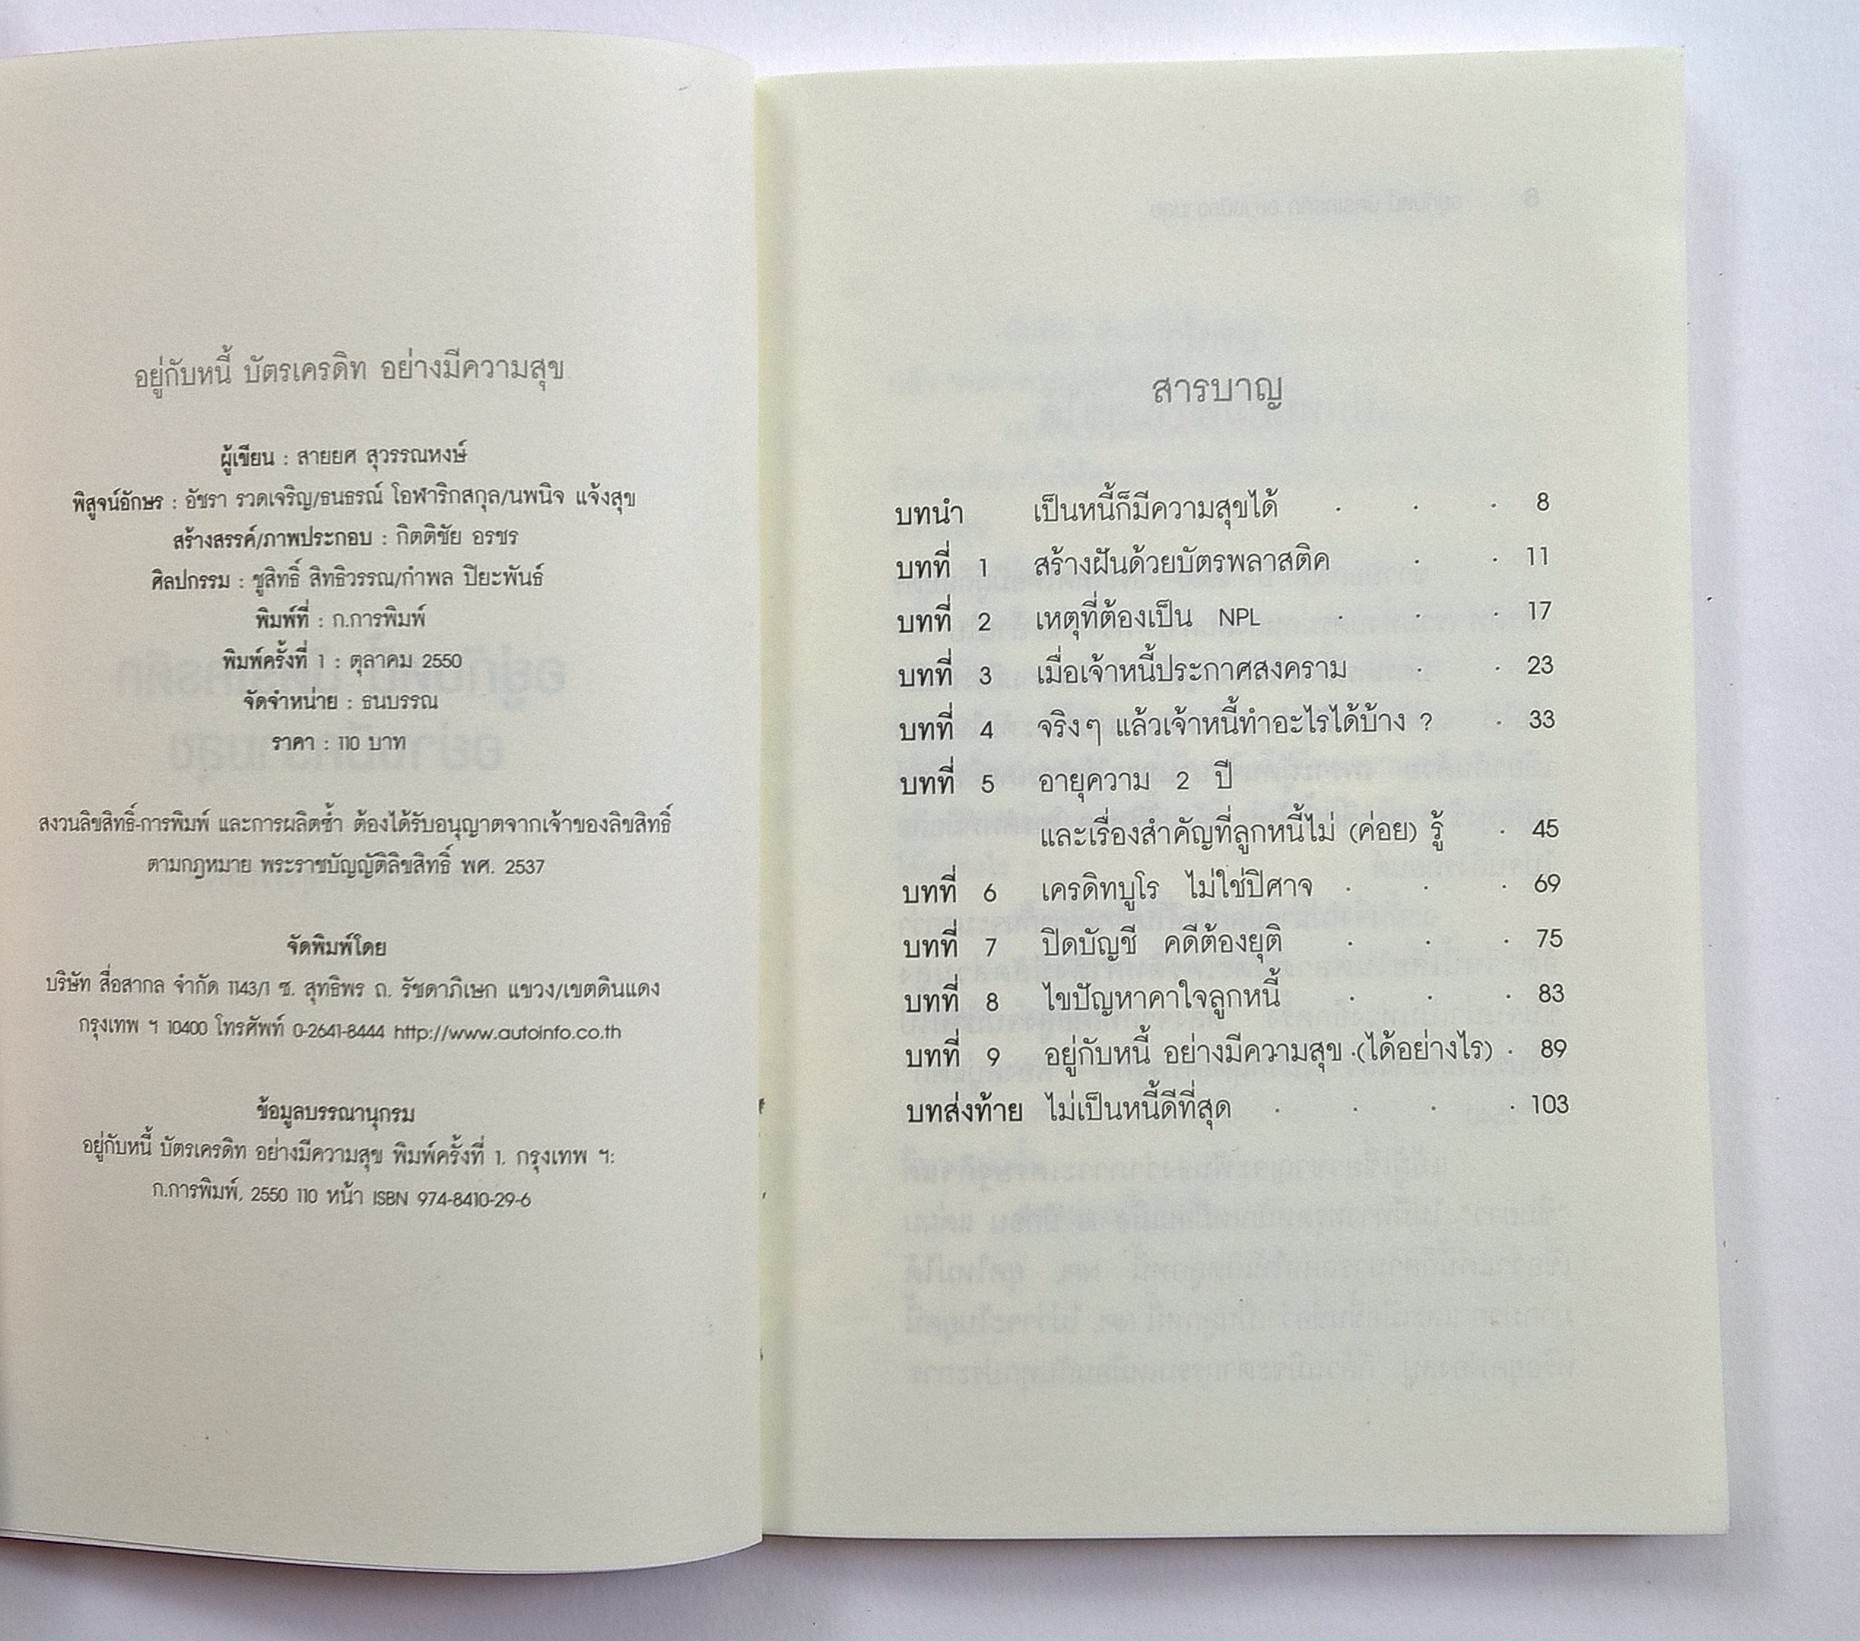 อยู่กับหนี้ บัตรเครดิท อย่างมีความสุข
ผู้เขียน : สายยศ สุวรรณหงษ์
พิสูจน์อักษร : อัชรา รวดเจริญ/ธนธรณ์ โอฬาริกสกุล/นพนิจ แจ้งสุข
สร้างสรรค์/ภาพประกอบ : กิตติชัย อรชร
ศิลปกรรม : ชูสิทธิ์ สิทธิวรรณ/กำพล ปิยะพันธ์
พิมพ์ที่ : ก.การพิมพ์
พิมพ์ครั้งที่ 1 : ตุลาคม 2550
จัดจำหน่าย : ธนบรรณ
ราคา : 110 บาท
สงวนลิขสิทธิ์-การพิมพ์ และการผลิตซ้ำ ต้องได้รับอนุญาตจากเจ้าของลิขสิทธิ์
ตามกฎหมาย พระราชบัญญัติลิขสิทธิ์ พศ. 2537
จัดพิมพ์โดย
บริษัท สื่อสากล จำกัด 1143/1 ซ. สุทธิพร ถ. รัชดาภิเษก แขวง/เขตดินแดง
กรุงเทพ ฯ 10400 โทรศัพท์ 0-2641-8444 http://www.autoinfo.co.th
ข้อมูลบรรณานุกรม
อยู่กับหนี้ บัตรเครดิท อย่างมีความสุข พิมพ์ครั้งที่ 1. กรุงเทพ ฯ:
ก.การพิมพ์, 2550 110 หน้า ISBN 974-8410-29-6
สารบาญ
บทนำ เป็นหนี้ก็มีความสุขได้ . . . 8
บทที่ 1 สร้างฝันด้วยบัตรพลาสติค . . 11
บทที่ 2 เหตุที่ต้องเป็น NPL . . . 17
บทที่ 3 เมื่อเจ้าหนี้ประกาศสงคราม . . 23
บทที่ 4 จริงๆ แล้วเจ้าหนี้ทำอะไรได้บ้าง ? . 33
บทที่ 5 อายุความ 2 ปี
และเรื่องสำคัญที่ลูกหนี้ไม่ (ค่อย) รู้ . 45
บทที่ 6 เครดิทบูโร ไม่ใช่ปิศาจ . . . 69
บทที่ 7 ปิดบัญชี คดีต้องยุติ . . . 75
บทที่ 8 ไขปัญหาคาใจลูกหนี้ . . . 83
บทที่ 9 อยู่กับหนี้ อย่างมีความสุข (ได้อย่างไร) . 89
บทส่งท้าย ไม่เป็นหนี้ดีที่สุด . . . . 103